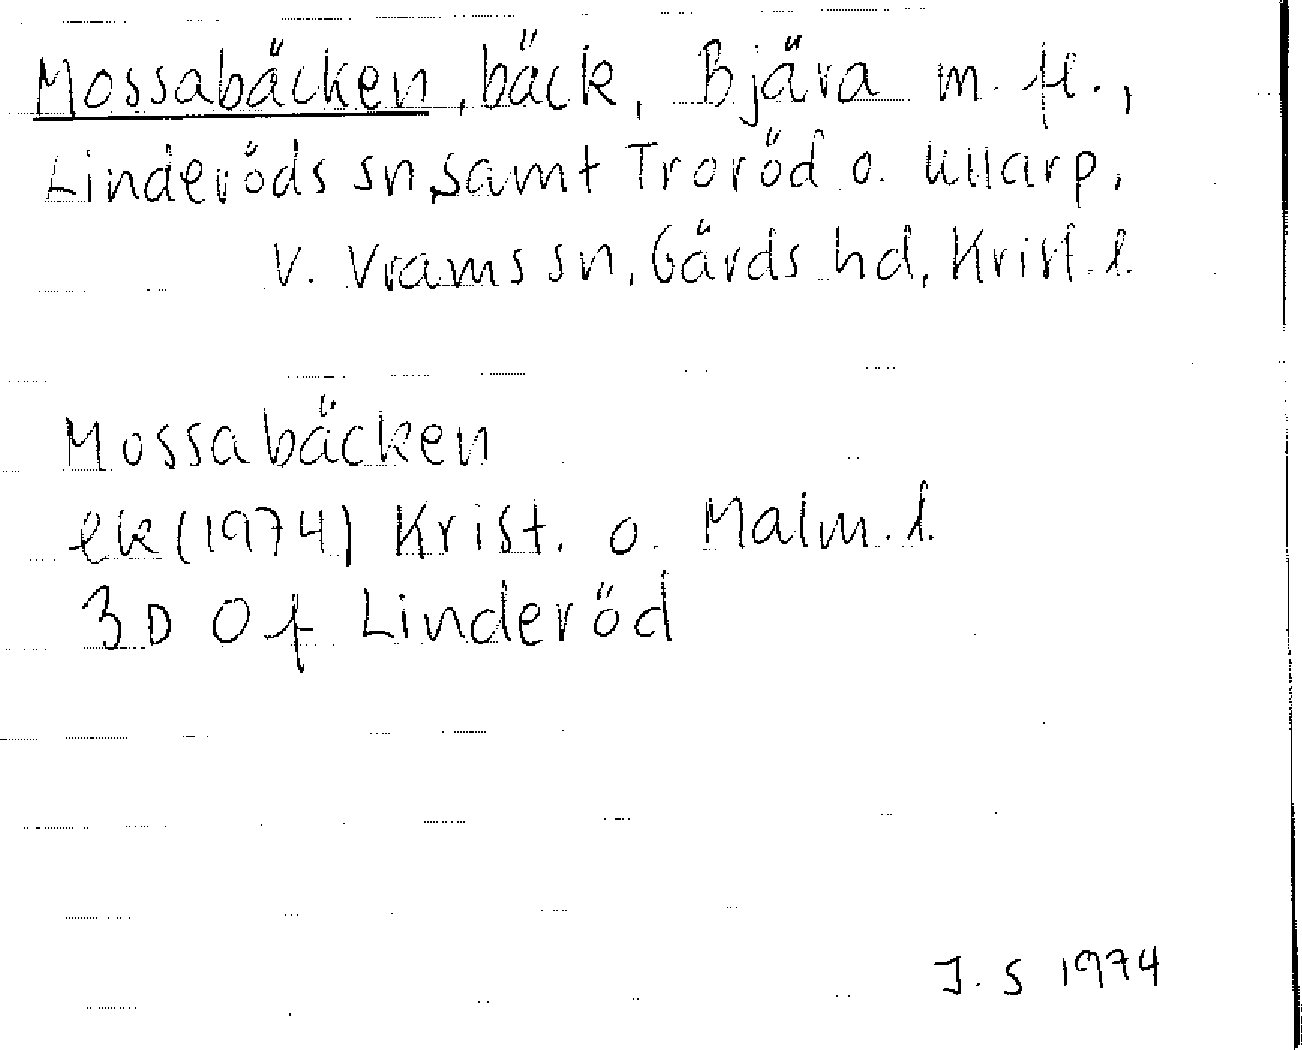 Mossabäcken, bäck, Bjära m. fl.,
Linderöds sn, samt Troröd o. Ullarp,
V. Vrams sn, Gärds hd, Krist. l.
Mossabäcken
ek (1974) Krist. o. Malm. l.
3D 0f Linderöd
J. S 1974